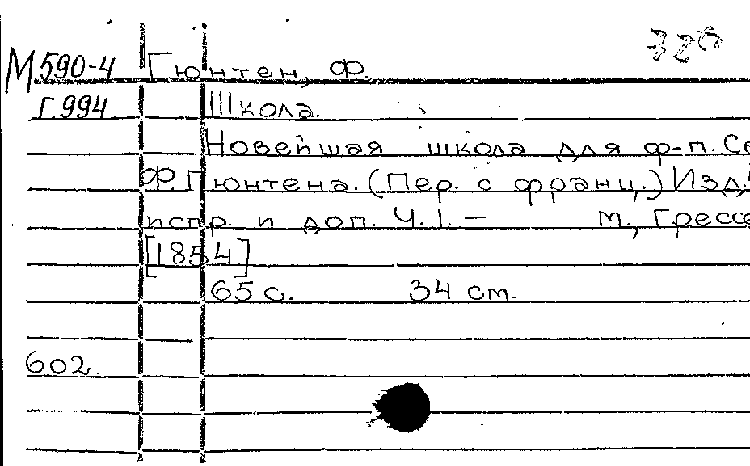 М590-4 Гюнтен, Ф.
Г.994 Школа.
Новейшая школа для ф-п. Со
Ф. Гюнтена. (Пер. с франц.) Изд.
испр. и доп. Ч. I. — М., Грессе
[1854]
65 с. 34 см.
602